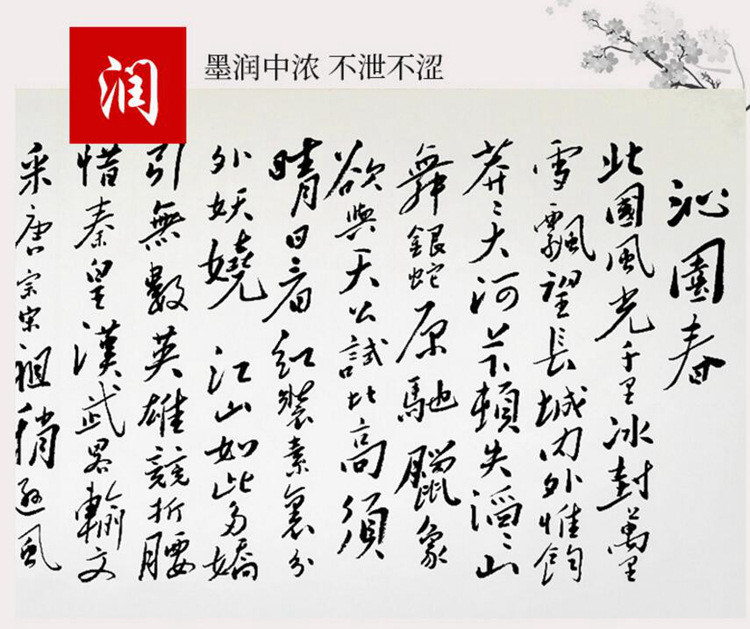 润
墨润中浓 不泄不涩
沁園春
北國風光千里冰封萬里
雪飄望長城内外惟餘
莽〻大河上下頓失滔〻山
舞銀蛇原馳臘象
欲與天公試比高須
晴日看紅裝素裹分
外妖嬈 江山如此多嬌
引無數英雄競折腰
惜秦皇漢武畧輸文
采唐宗宋祖稍遜風